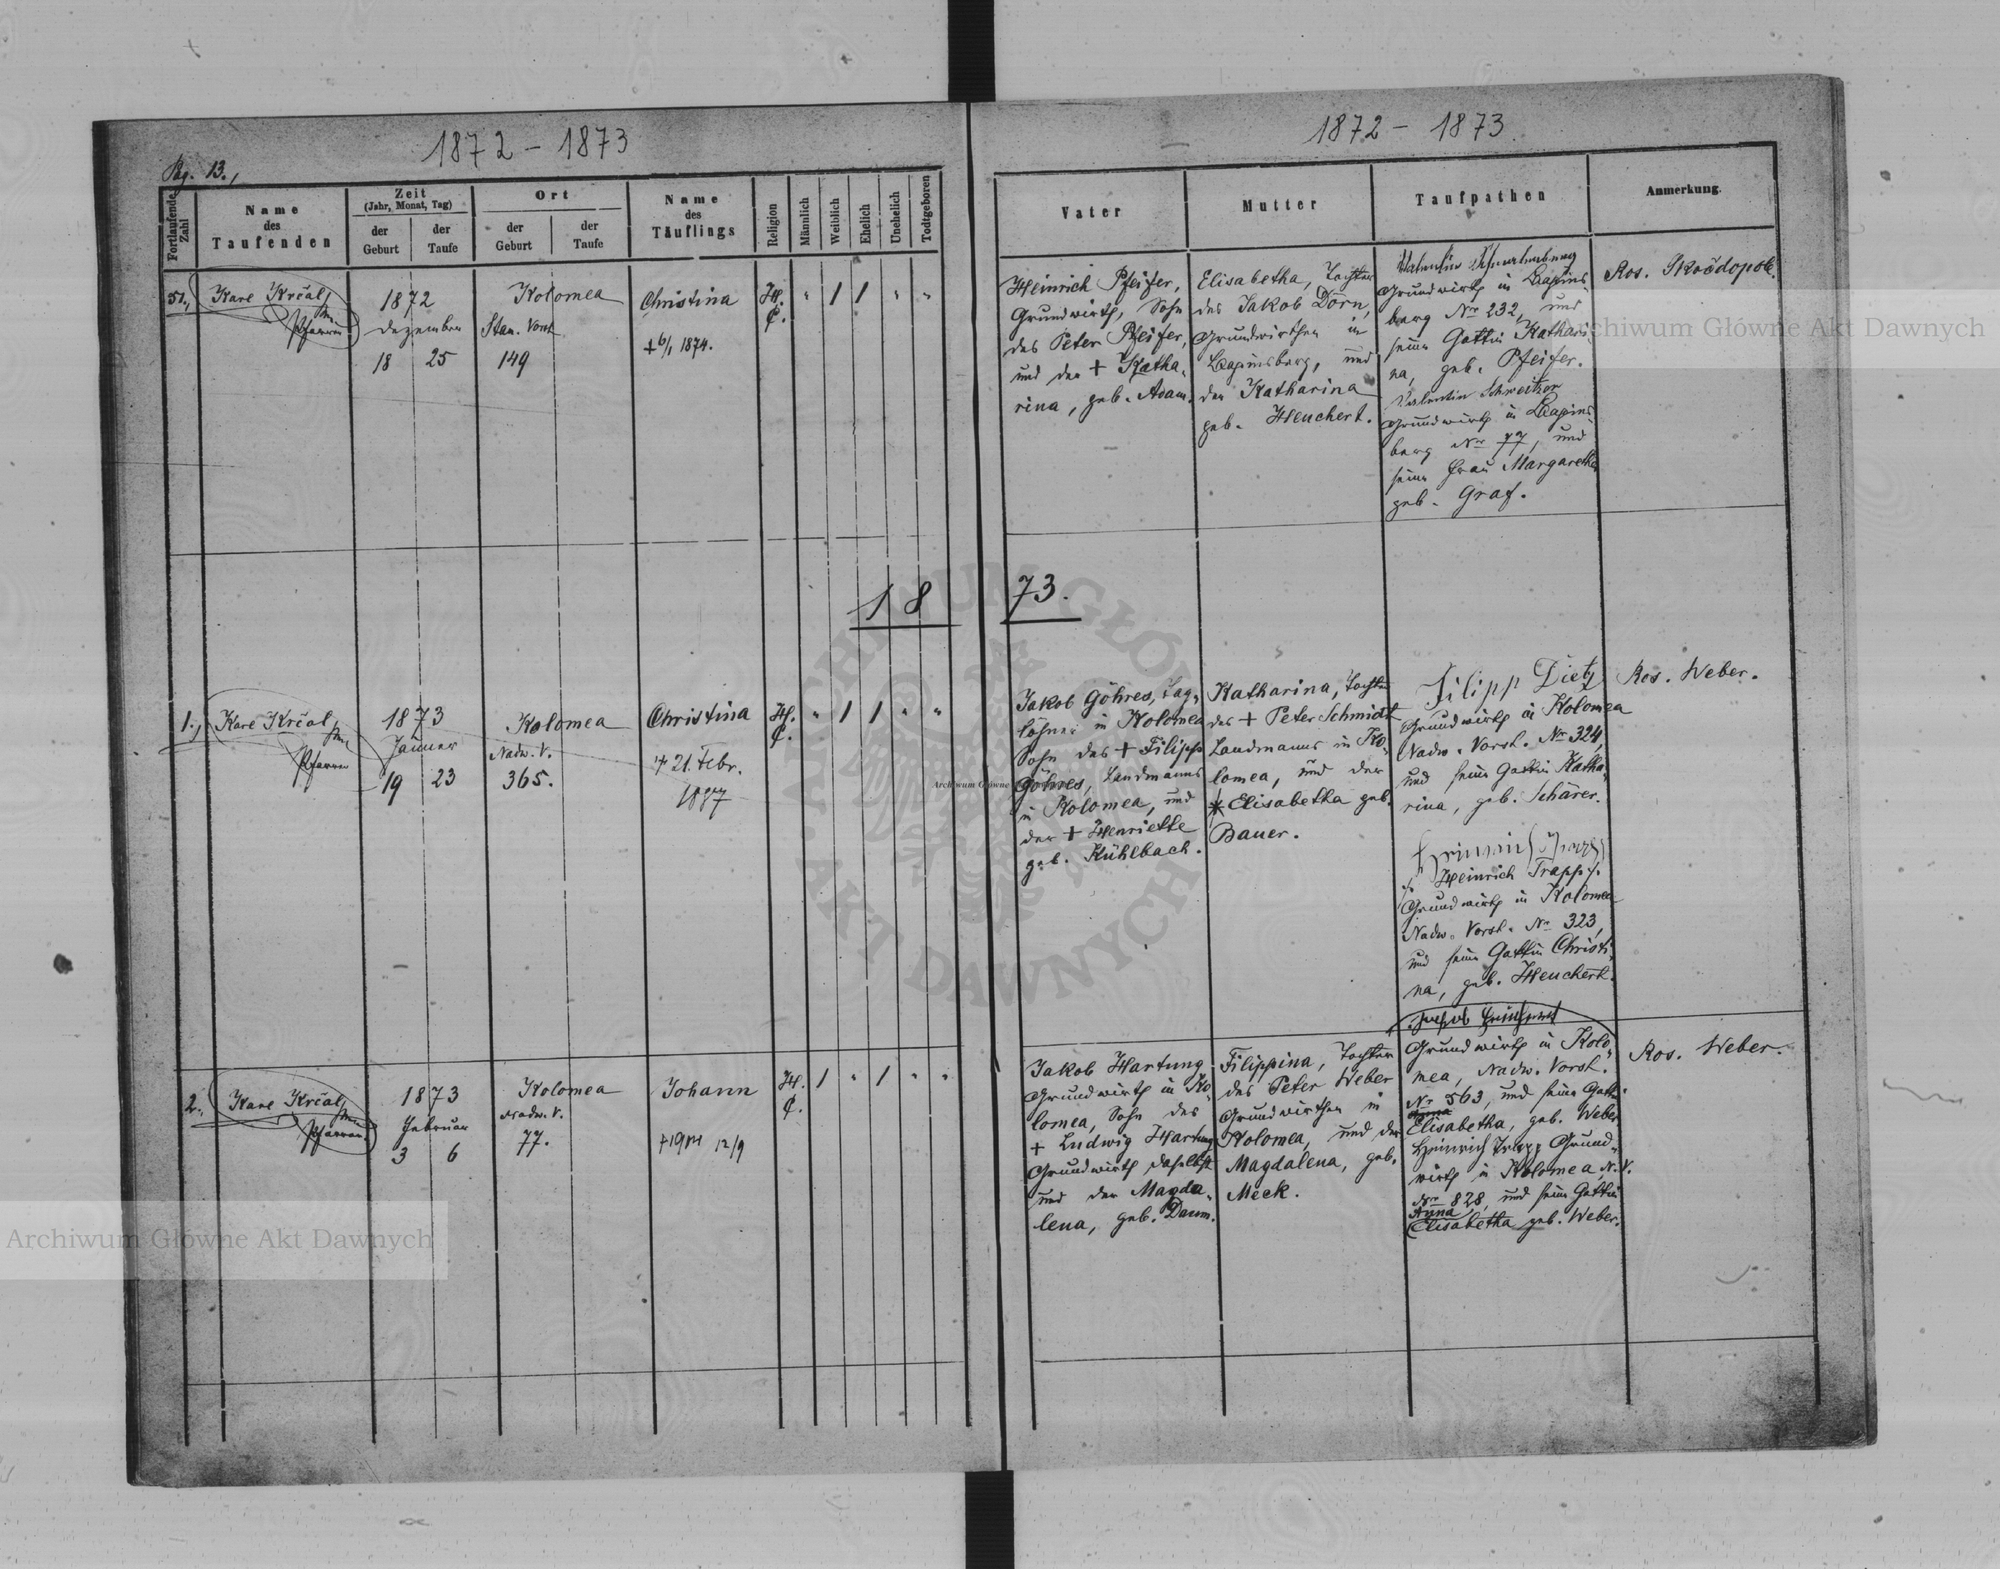 1872 - 1873
Pag. 13.,
Fortlaufende Zahl
Name
des
Taufenden
Zeit
(Jahr, Monat, Tag)
der
Geburt
der
Taufe
Ort
der
Geburt
der
Taufe
Name
des
Täuflings
Religion
Männlich
Weiblich
Ehelich
Unehelich
Todtgeboren
51.,
Karl Krčal,
Pfarrer
1872
Dezember
18 25
Kolomea
Stan. Vorst
149
Christina
+ 6/1 1874.
H. C.
" 1 1 " "
18
1.,
Karl Krčal,
Pfarrer
1873
Jänner
19 23
Kolomea
Nadw. V.
365.
Christina
+ 21. Febr.
H. C.
" 1 1 " "
2.,
Karl Krčal,
Pfarrer.
1873
Februar
3 6
Kolomea
Nadw. V.
77.
Johann
12/9
H. C.
1 " 1 " "
1872 - 1873
Vater
Mutter
Taufpathen
Anmerkung.
Heinrich Pfeifer,
Grundwirth, Sohn
des Peter Pfeifer,
und der + Katha-
rina, geb. Adam.
Elisabetha, Tochter
des Jakob Dorn,
Grundwirthen in
Baginsberg, und
der Katharina
geb. Heuchert.
Valentin
Grundwirth in Bagins-
berg Nr 232, und
seine Gattin Kathari-
na, geb. Pfeifer.
Valentin Schweitzer
Grundwirth in Bagins-
berg Nr 77, und
seine Frau Margaretha
geb. Graf.
Ros. Skoödopole.
73.
Jakob Göhres, Tag-
löhner in Kolomea
Sohn des + Filipp
Göhres, Landmanns
in Kolomea, und
der + Henriette
geb. Kühlbach.
Katharina, Tochter
des + Peter Schmidt
Landmanns in Ko-
lomea, und der
* Elisabetha geb.
Bauer.
Filipp Dietz
Grundwirth in Kolomea
Nadw. Vorst. Nr 324,
und seine Gattin Katha-
rina, geb. Schärer.
/: Heinrich Trapp :/
Grundwirth in Kolomea
Nadw. Vorst. Nr 323,
und seine Gattin Christi-
na, geb. Heuchert.
Ros. Weber.
Jakob Hartung
Grundwirth in Ko-
lomea, Sohn des
+ Ludwig Hartung
Grundwirth daselbst
und der Magda-
lena, geb. Daum.
Filippina, Tochter
des Peter Weber
Grundwirthen in
Kolomea, und der
Magdalena, geb.
Meck.
Jakob
Grundwirth in Kolo-
mea, Nadw. Vorst.
Nr 563, und seine Gattin
Elisabetha, geb. Weber
Heinrich Trapp Grund-
wirth in Kolomea N. V.
Nr 828, und seine Gattin
Anna
Elisabetha geb. Weber.
Ros. Weber.
Archiwum Główne Akt Dawnych
Archiwum Główne Akt Dawnych
ARCHIWUM GŁÓWNE AKT DAWNYCH